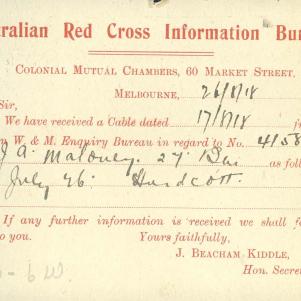 ralian Red Cross Information Bu
COLONIAL MUTUAL CHAMBERS, 60 MARKET STREET,
MELBOURNE, 26/8/18
Sir,
We have received a Cable dated 17/8/18 f
W. & M. Enquiry Bureau in regard to No. 4158
J A. Maloney. 27 Bn as follo
July 26 Hurdcott.
If any further information is received we shall fo
o you. Yours faithfully,
J. BEACHAM KIDDLE,
Hon. Secre